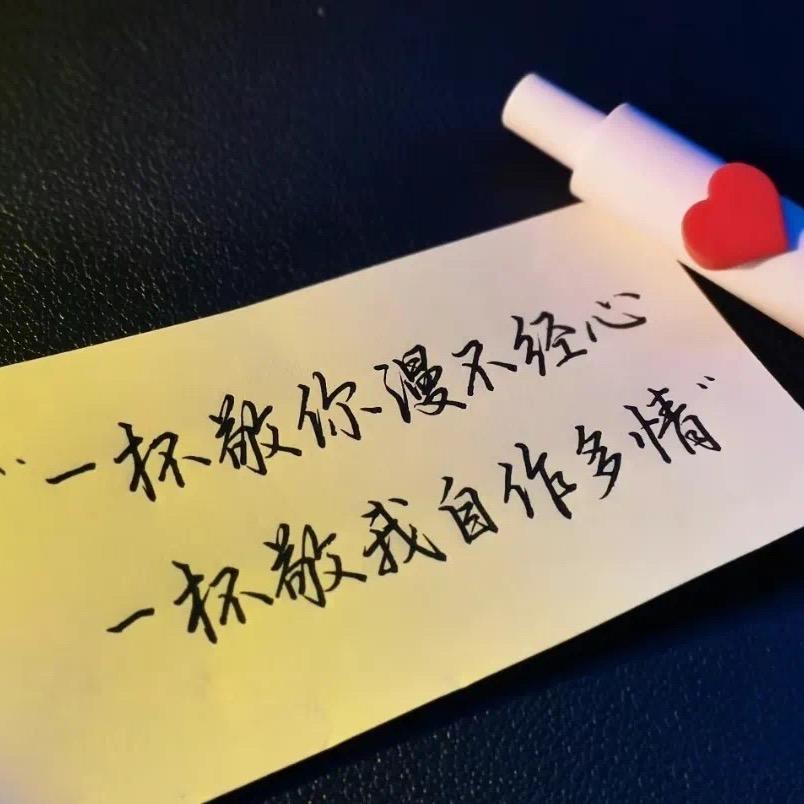 “一杯敬你漫不经心
一杯敬我自作多情”